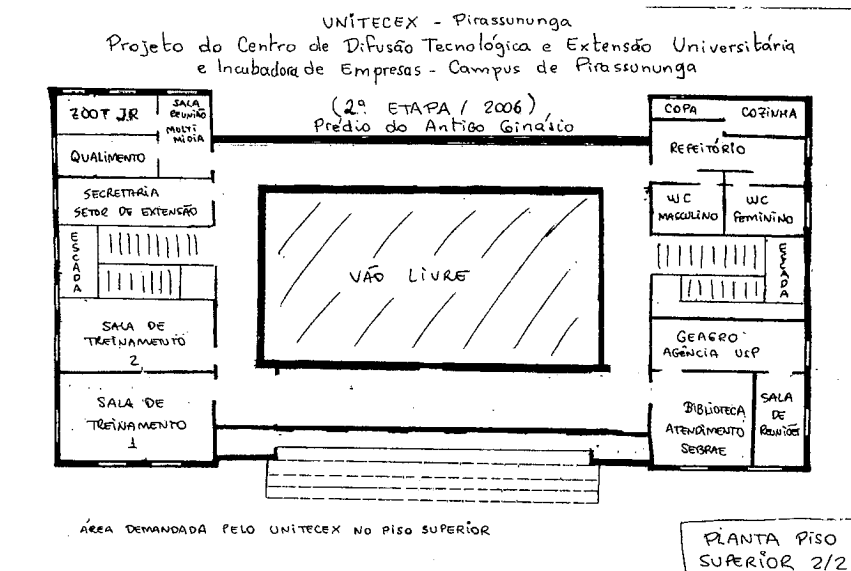 UNITECEX - Pirassununga
Projeto do Centro de Difusão Tecnológica e Extensão Universitária
e Incubadora de Empresas - Campus de Pirassununga
(2ª ETAPA / 2006)
Prédio do Antigo Ginásio
ZOOT JR
SALA
REUNIÃO
MULTI
MIDIA
QUALIMENTO
SECRETARIA
SETOR DE EXTENSÃO
ESCADA
SALA DE
TREINAMENTO
2
SALA DE
TREINAMENTO
1
VÃO LIVRE
COPA COZINHA
REFEITÓRIO
WC
MASCULINO
WC
FEMININO
ESCADA
GEAGRO
AGÊNCIA USP
BIBLIOTECA
ATENDIMENTO
SEBRAE
SALA
DE
REUNIÕES
ÁREA DEMANDADA PELO UNITECEX NO PISO SUPERIOR
PLANTA PISO
SUPERIOR 2/2